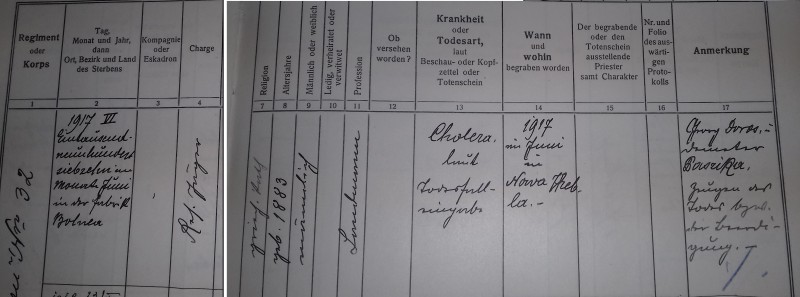 Regiment
oder
Korps
Tag,
Monat und Jahr,
dann
Ort, Bezirk und Land
des Sterbens
Kompagnie
oder
Eskadron
Charge
1
2
3
4
32
1917 VI
Eintausend-
neunhundert
siebzehn im
Monate Juni
in der Fabrik
Res. Jäger
Religion
Altersjahre
Männlich oder weiblich
Ledig, verheiratet oder
verwitwet
Profession
Ob
versehen
worden?
Krankheit
oder
Todesart,
laut
Beschau- oder Kopf-
zettel oder
Totenschein
Wann
und
wohin
begraben worden
Der begrabende
oder den
Totenschein
ausstellende
Priester
samt Charakter
Nr. und
Folio
des aus-
wärti-
gen
Proto-
kolls
Anmerkung
7
8
9
10
11
12
13
14
15
16
17
geb. 1883
männlich
Landmann
Cholera,
laut
Todesfall-
eingabe
1917
im Juni
in
Nowa Treb-
la.-
Zeugen des
Todes bezw.
der Beerdi-
gung.-